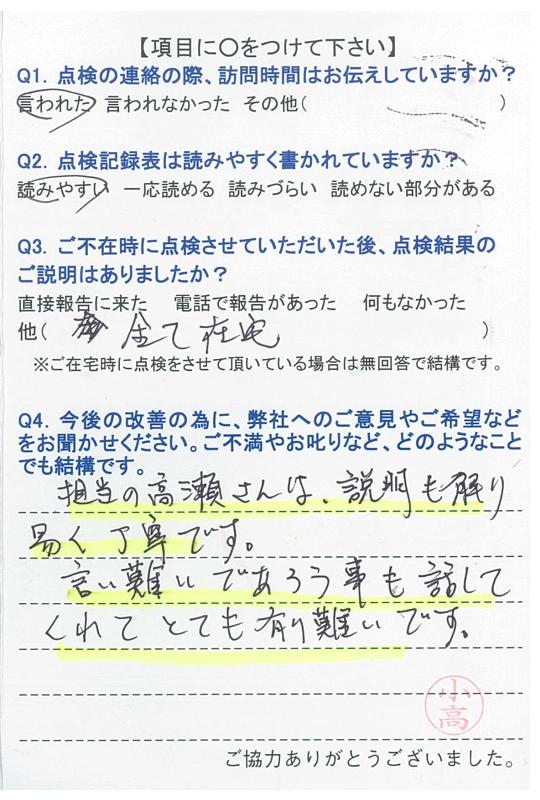 【項目に〇をつけて下さい】
Q1. 点検の連絡の際、訪問時間はお伝えしていますか?
言われた 言われなかった その他( )
Q2. 点検記録表は読みやすく書かれていますか?
読みやすい 一応読める 読みづらい 読めない部分がある
Q3. ご不在時に点検させていただいた後、点検結果の
ご説明はありましたか?
直接報告に来た 電話で報告があった 何もなかった
他( 全て在宅 )
※ご在宅時に点検をさせて頂いている場合は無回答で結構です。
Q4. 今後の改善の為に、弊社へのご意見やご希望など
をお聞かせください。ご不満やお叱りなど、どのようなこと
でも結構です。
担当の高瀬さんは、説明も解り
易く丁寧です。
言い難いであろう事も話して
くれてとても有り難いです。
小高
ご協力ありがとうございました。